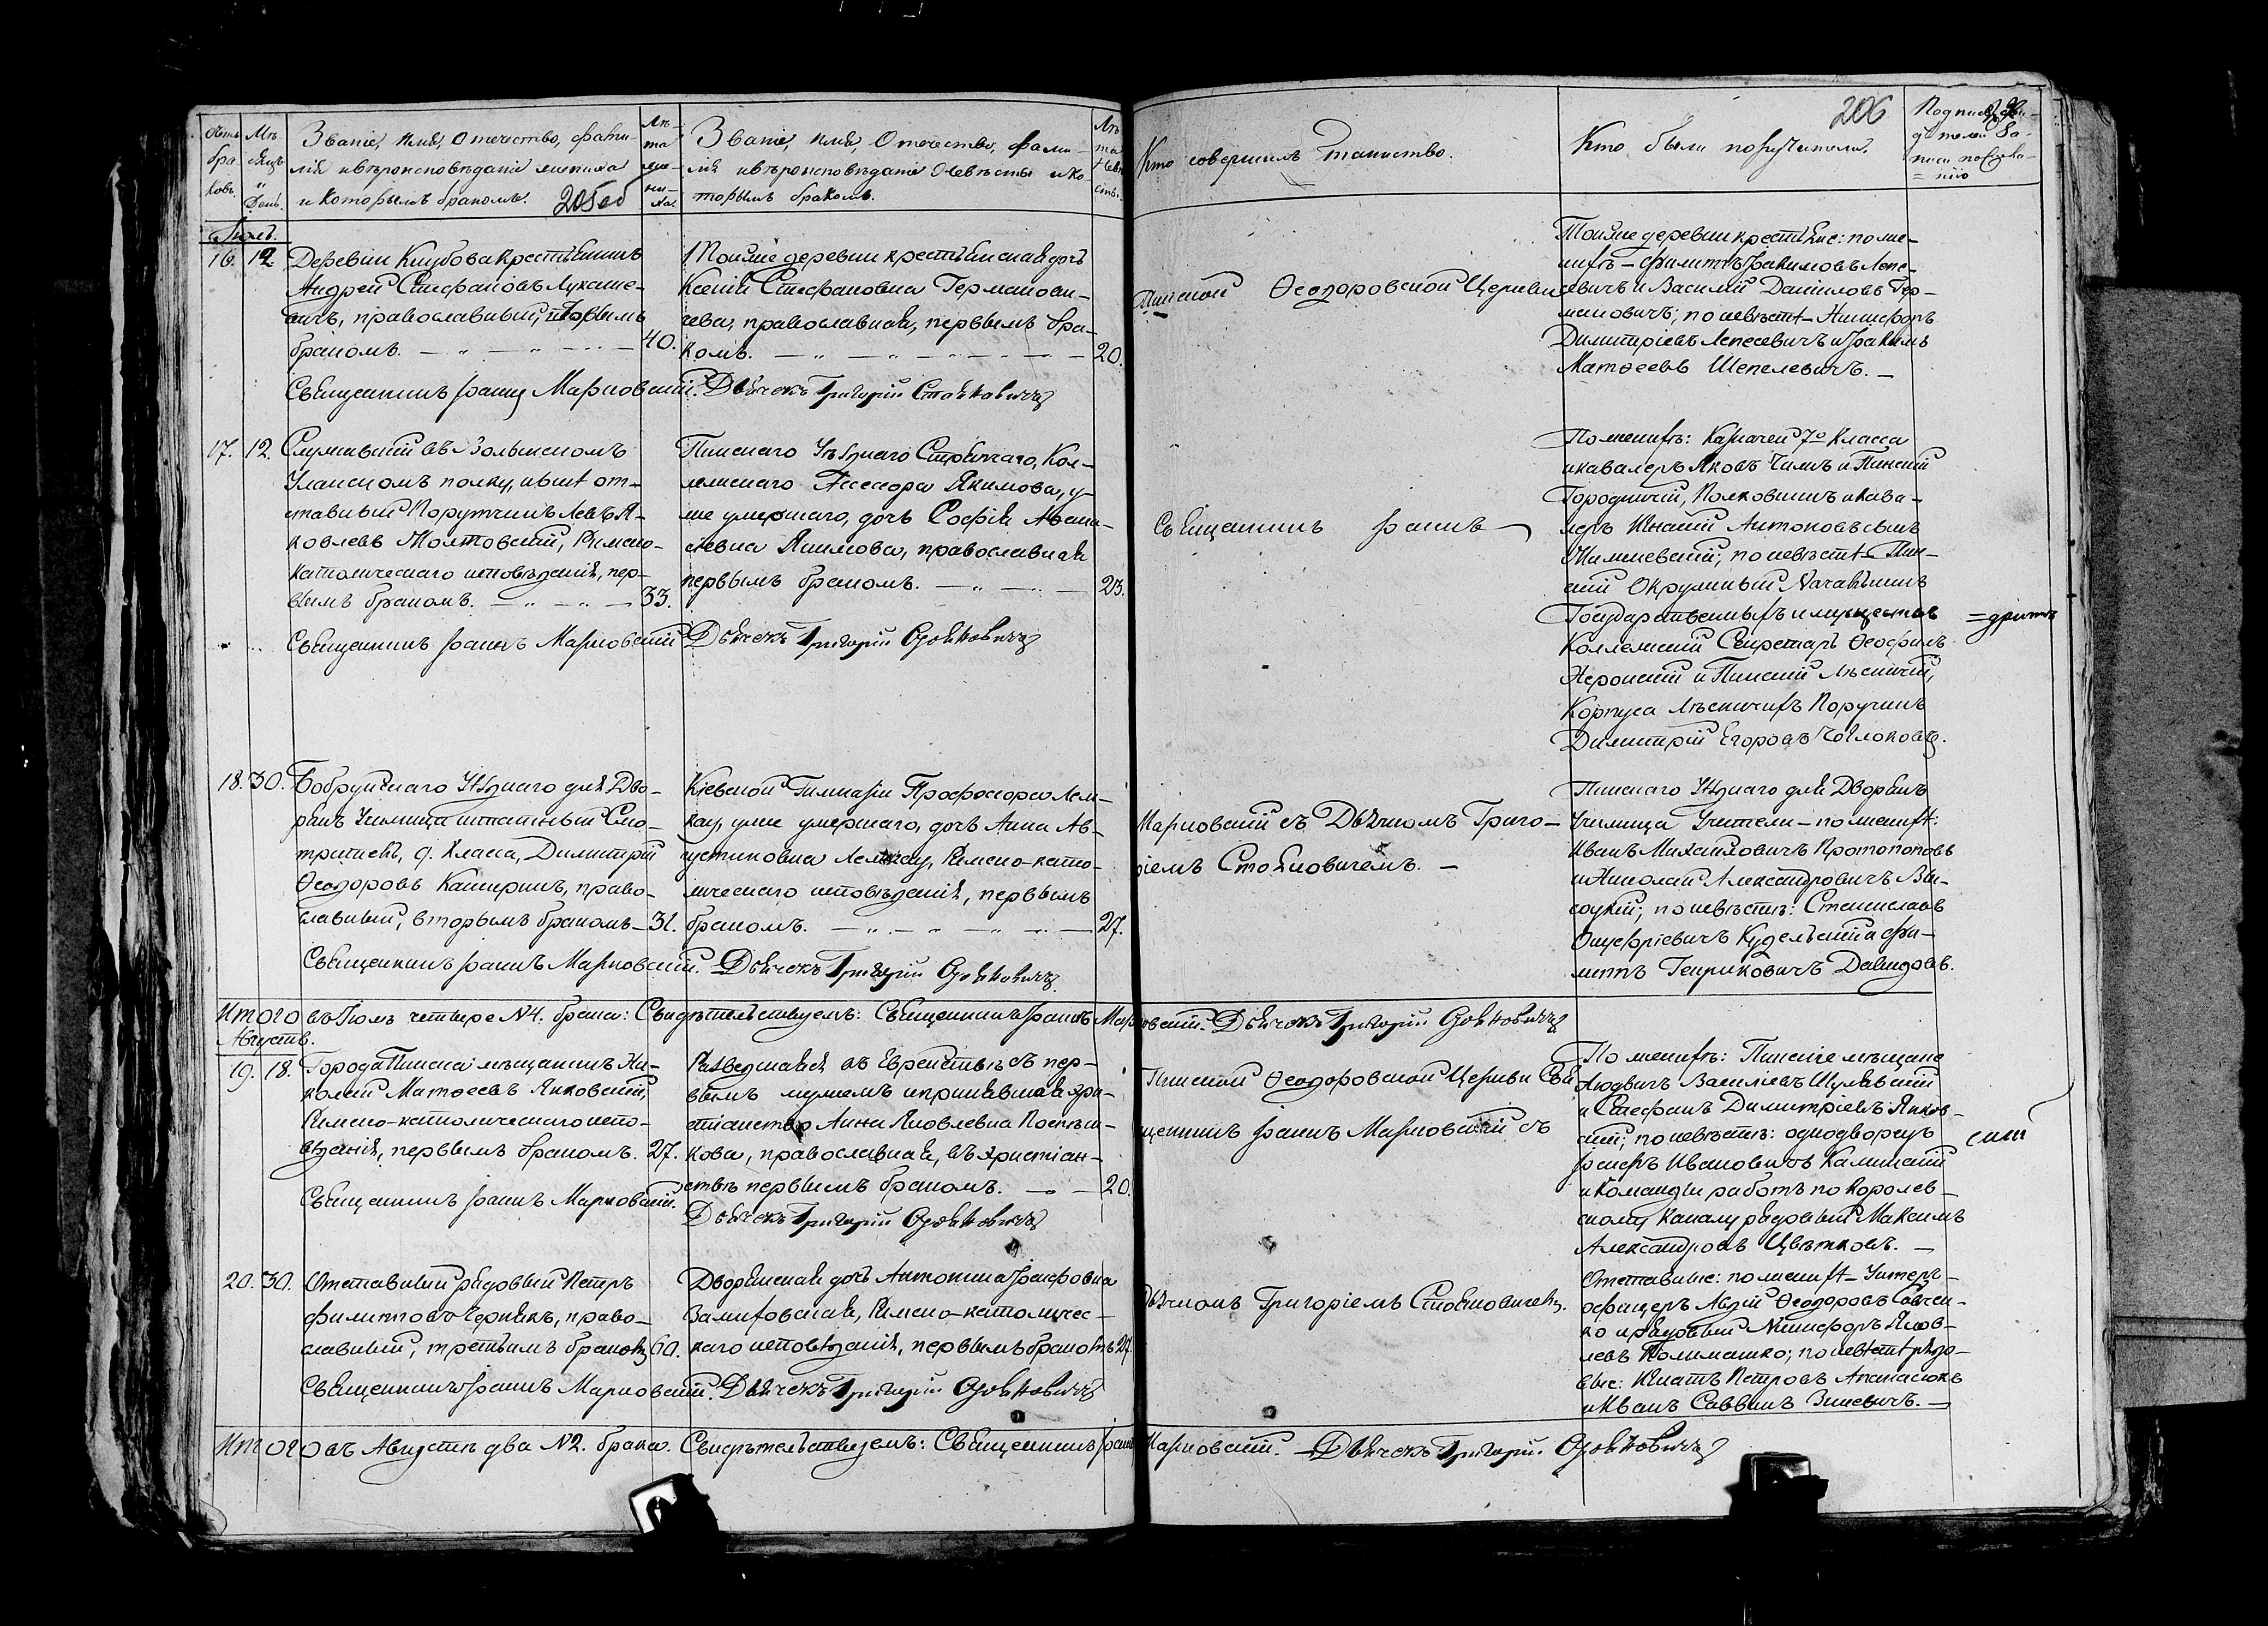 Счетъ браковъ.
Мѣсяцъ и День.
Званіе, Имя, Отечество, фами-
лія и вѣроисповѣданіе жениха
и которымъ бракомъ. 205об
Лѣта жениха.
Званіе, Имя, Отечество, фами-
лія и вѣроисповѣданіе Невѣсты и ко-
торымъ бракомъ.
Лѣта Невѣсты.
Кто совершилъ Таинство.
Кто были поручители.
206
Подпись свидѣтелей записи по желанію
Іюль.
16. 12. Деревни
крестьянинъ
Андрей Стефановъ Лукаше-
вичъ, православный, вторымъ
бракомъ. 40.
Священникъ Іоаннъ Марновскій.
Тойже деревни крестьянская дочь
Ксенія Стефановна Германови-
чева, православная, первымъ бра-
комъ. 20.
Дьячекъ Григорій Стояновичъ
Пинской Ѳеодоровской Церкви
Тойже деревни крестьяне: по же-
нихѣ – Филиппъ Іоакимовъ Лепе-
севичъ и Василій Даніиловъ Гер-
мановичъ; по невѣстѣ – Никифоръ
Димитріевъ Лепесевичъ и Іоакимъ
Матѳеевъ Шепелевичъ. –
17. 12. Служавшій въ Волынскомъ
Уланскомъ полку, нынѣ от-
ставный Порутчикъ Левъ Я-
ковлевъ Молтовскій, Римско-
католическаго исповѣданія, пер-
вымъ бракомъ. 33.
Священникъ Іоаннъ Марновскій
Пинскаго Уѣзднаго Стряпчаго, Кол-
лежскаго Ассесора Якимова, у-
же умершаго, дочь Софія Аѳана-
сіевна Якимова, православная
первымъ бракомъ. 23.
Дьячекъ Григорій Стояновичъ
Священникъ Іоаннъ
По женихѣ: Казначей 7го Класса
и кавалеръ Яковъ
и Пинскій
Городничій, Полковникъ и Кава-
леръ Игнатій Антоновъ сынъ
по невѣстѣ – Пин-
скій Окружный Начальникъ
Государственныхъ имуществъ
Коллежскій Секретарь Ѳеофилъ
и Пинскій Лѣсничій,
Корпуса Лѣсничихъ Поручикъ
Димитрій Егоровъ Чоглоковъ.
18. 30. Бобруйскаго Уѣзднаго для Дво-
рянъ Училища штатный Смо-
тритель, 9. Класса, Димитрій
Ѳеодоровъ Каширинъ, право-
славный, вторымъ бракомъ – 31.
Священникъ Іоаннъ Марновскій.
Кіевской Гимназіи Профессора Лем-
кау, уже умершаго, дочь Анна Ав-
густиновна Лемкау, Римско-като-
лическаго исповѣданія, первымъ
бракомъ. 27.
Дьячекъ Григорій Стояновичъ
Марновскій съ Дьячкомъ Григо-
ріемъ Стояновичемъ. –
Пинскаго Уѣзднаго для Дворянъ
Училища Учители – по женихѣ:
Иванъ Михайловичъ Протопоповъ
и Николай Александровичъ Вы-
соцкій; по невѣстѣ: Станиславъ
Онуфріевичъ
и Фи-
липпъ Генриковичъ Давидовъ.
Итого въ Іюлѣ четыре №4. брака: Свидѣтельствуемъ: Священникъ Іоаннъ Марновскій. Дьячекъ Григорій Стояновичъ
Августъ.
19. 18. Города Пинска мѣщанинъ Ни-
колай Матѳеевъ Янковскій,
Римско-католическаго испо-
вѣданія, первымъ бракомъ. 27.
Священникъ Іоаннъ Марновскій.
Разведшаяся въ Еврействѣ съ пер-
вымъ мужемъ и принявшая хри-
стіанство Анна Яковлевна
православная, въ христіан-
ствѣ первымъ бракомъ. 20.
Дьячекъ Григорій Стояновичъ
Пинской Ѳеодоровской Церкви Свя-
щенникъ Іоаннъ Марновскій съ
По женихѣ: Пинскіе мѣщане
Людвигъ Василіевъ
и Стефанъ Димитріевъ Янков-
скій; по невѣстѣ: однодворецъ
Іосифъ Ивановичъ
и Команды работъ по Королев-
скому каналу рядовый Максимъ
Александровъ Цвѣтковъ. –
20. 30. Отставный рядовый Петръ
Филипповъ Чернякъ, право-
славный, третьимъ бракомъ 60.
Священникъ Іоаннъ Марновскій.
Дворянская дочь Антонина Іосифовна
Залиховская, Римско-католичес-
каго исповѣданія, первымъ бракомъ 27.
Дьячекъ Григорій Стояновичъ
Дьячкомъ Григоріемъ Стояновичемъ.
Отставные: по женихѣ – Унтеръ-
офицеръ
Ѳеодоровъ Савчен-
ко и рядовый Никифоръ Яков-
левъ
по невѣстѣ рядо-
вые: Игнатъ Петровъ Апанасюкъ
и Иванъ Саввинъ Зиневичъ. –
Итого въ Августѣ два №2. брака. Свидѣтельствуемъ: Священникъ Іоаннъ Марновскій. – Дьячекъ Григорій Стояновичъ